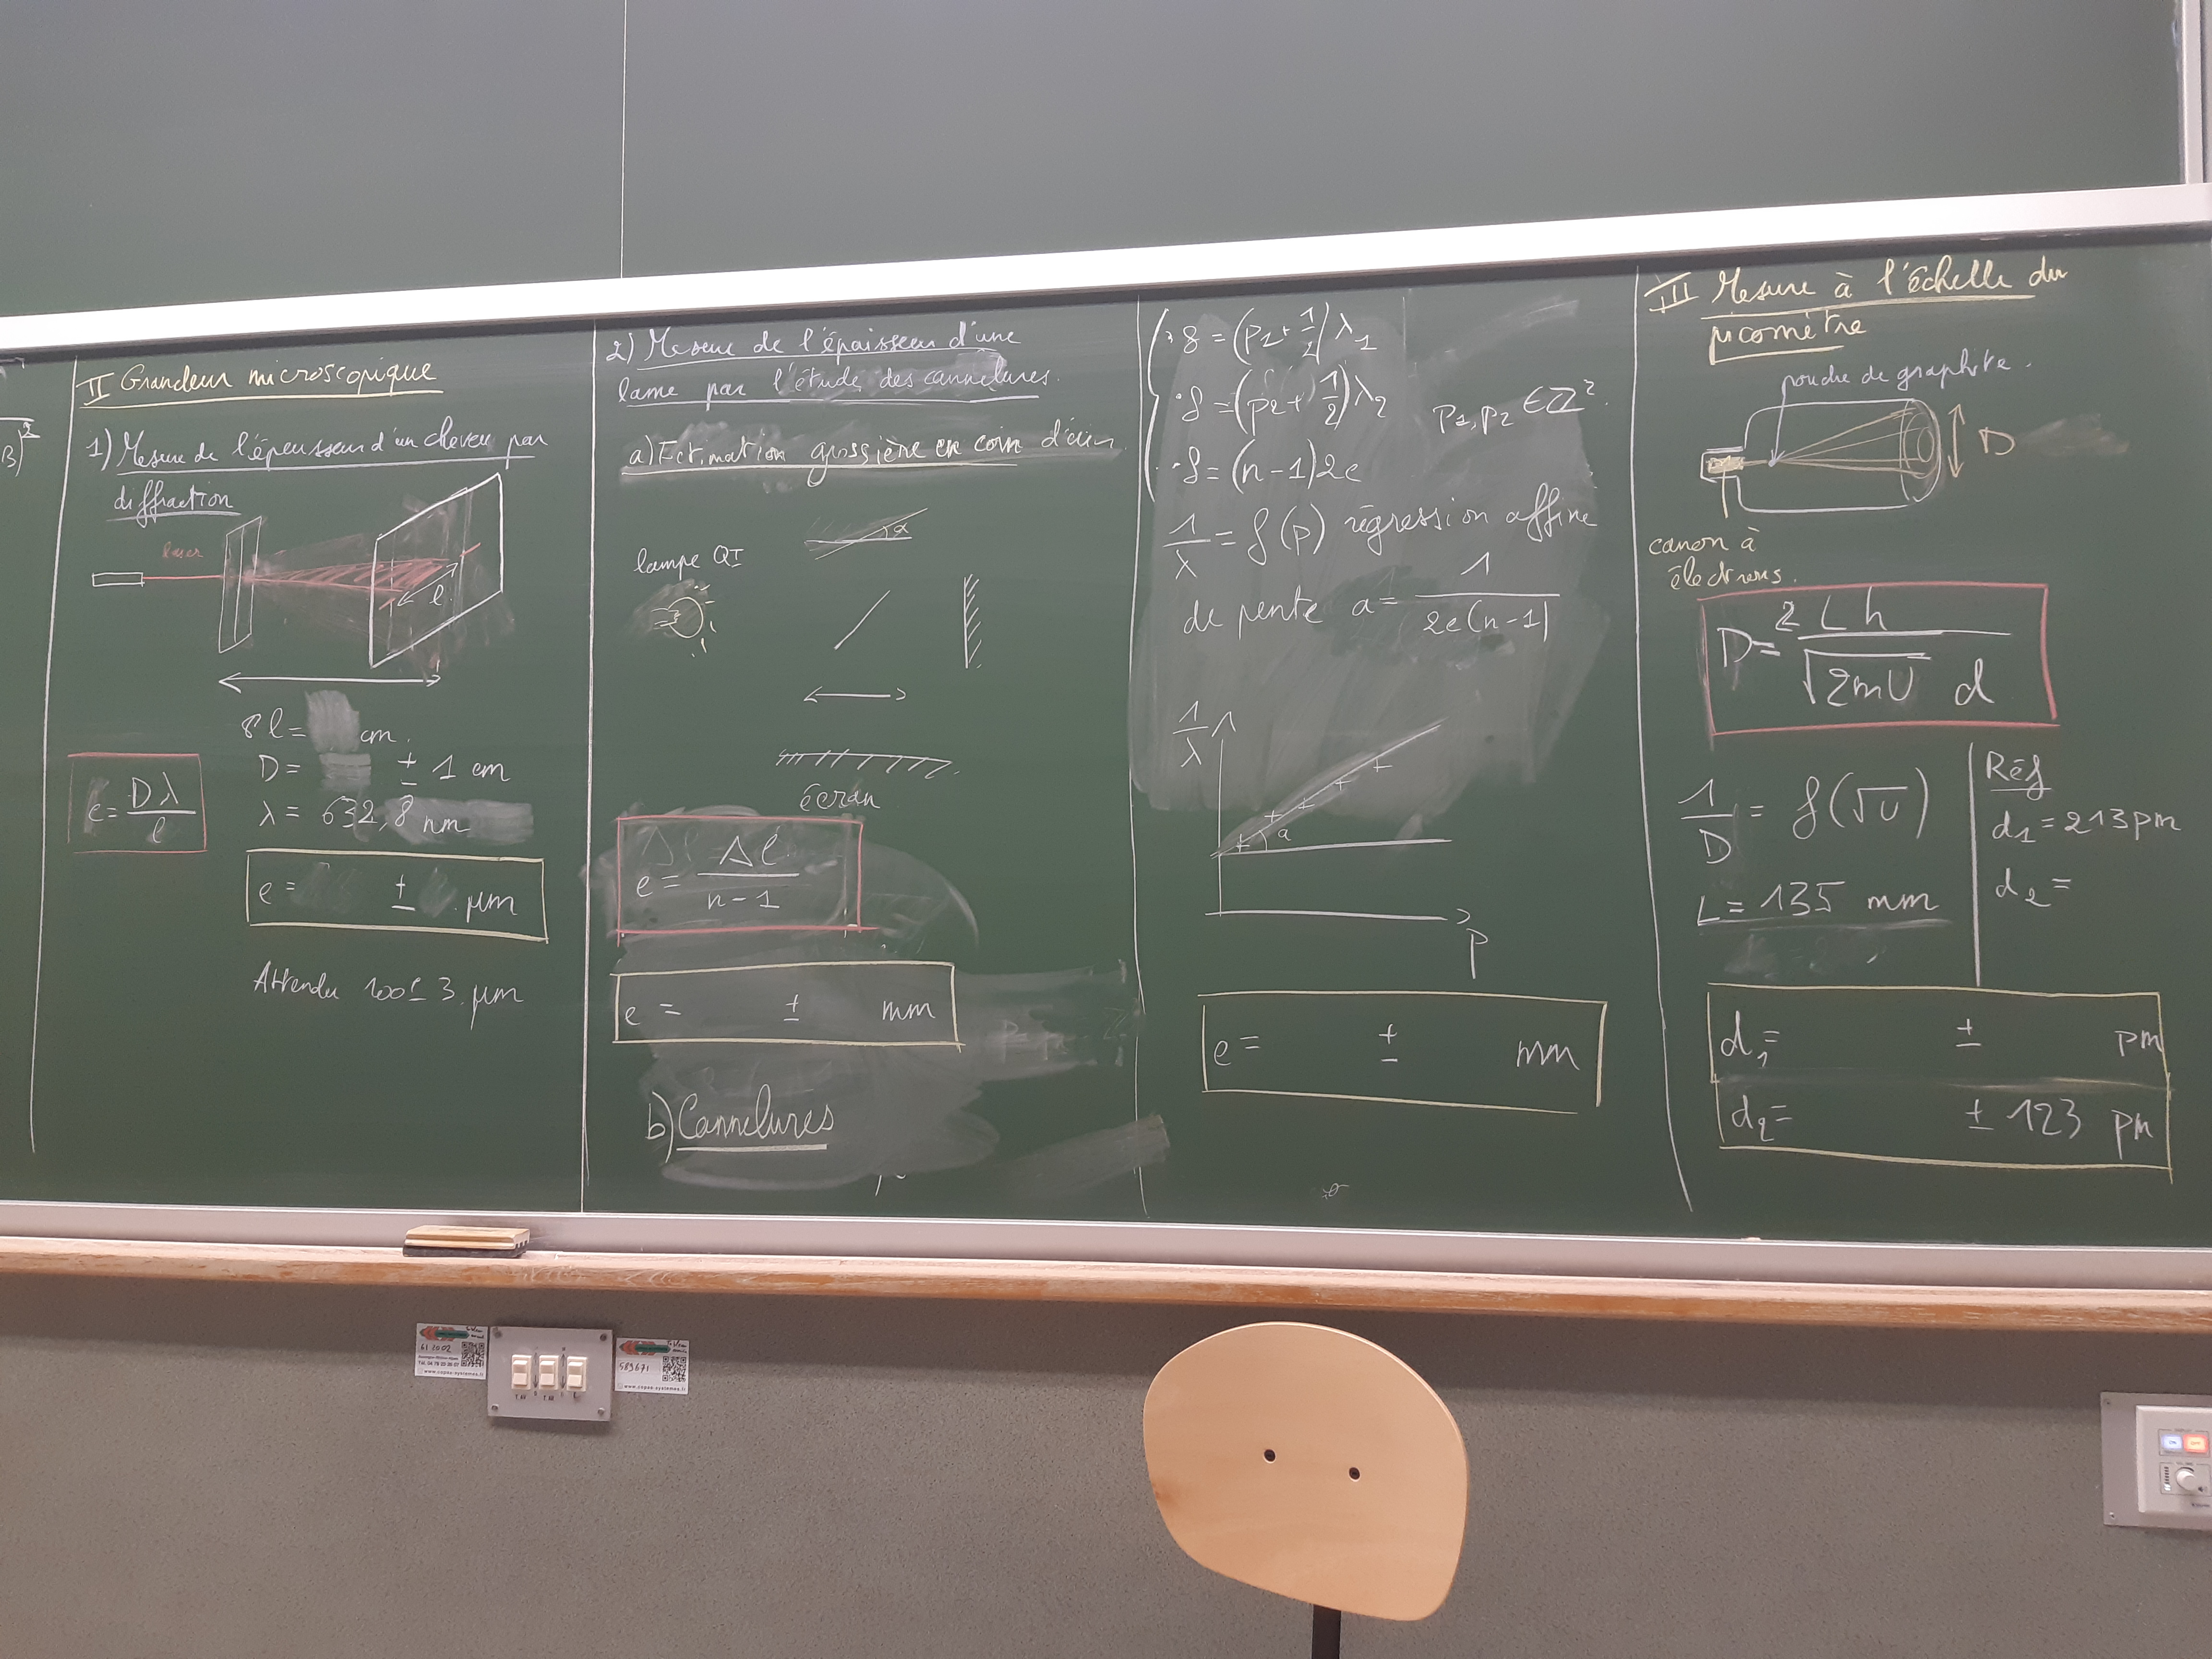 B)²
II Grandeur microscopique
1) Mesure de l'épaisseur d'un cheveu par
diffraction
laser
l
l = cm.
D = ± 1 cm
λ = 632,8 nm
e = Dλ / l
e = ± µm
Attendu 100 ± 3 µm
2) Mesure de l'épaisseur d'une
lame par l'étude des cannelures.
a) Estimation grossière en coin d'air
α
lampe QI
écran
e = Δl / n-1
e = ± mm
b) Cannelures
δ = (p1 + 1/2) λ1
δ = (p2 + 1/2) λ2 p1, p2 ∈ Z².
δ = (n-1)2e
1/λ = f(p) régression affine
de pente a = 1 / 2e(n-1)
1/λ
a
p
e = ± mm
III Mesure à l'échelle du
picomètre
poudre de graphite.
D
canon à
électrons.
D = 2Lh / √2mU d
1/D = f(√U)
L = 135 mm
Réf
d1 = 213 pm
d2 =
d1 = ± pm
d2 = ± 123 pm
61 2002
589671
www.copee-systemes.fr